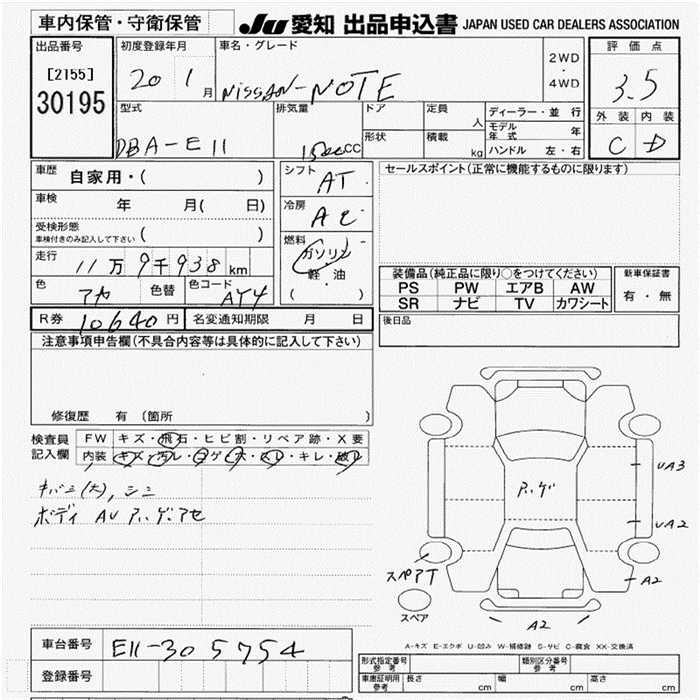 車内保管・守衛保管
JU 愛知 出品申込書 JAPAN USED CAR DEALERS ASSOCIATION
出品番号
[2155]
30195
初度登録年月
20 1 月
車名・グレード
NISSAN-NOTE
2WD
・
4WD
評価点
3.5
外装 内装
C D
型式
DBA-E11
排気量
1500cc
ドア
形状
定員
人
積載
kg
ディーラー・並行
モデル年式 年
ハンドル 左・右
車歴
自家用・( )
車検 年 月( 日)
受検形態
車検付きのみ記入して下さい ( )
走行
11万9千938km
色
色替
色コード
AY4
シフト
AT
冷房
燃料
ガソリン
軽油
( ・ )
セールスポイント(正常に機能するものに限ります)
装備品(純正品に限り○をつけてください)
PS PW エアB AW
SR ナビ TV カワシート
新車保証書
有・無
R券 10640円
名変通知期限 月 日
後日品
注意事項申告欄(不具合内容等は具体的に記入して下さい)
修復歴 有 (箇所 )
検査員
記入欄
FW キズ・飛石・ヒビ割・リペア跡・X要
内装 キズ・汚レ・コゲ・穴・スレ・キレ・破レ
キバミ(大), シミ
ボディ AU アハゲ アセ
アハゲ
UA3
UA2
A2
スペアT
スペア
A2
A-キズ E-エクボ U-凹み W-補修跡 S-サビ C-腐食 XX-交換済
車台番号
E11-305754
登録番号
形式指定番号
参考
類別区分番号
参考
車庫証明用
参考
長さ cm
幅 cm
高さ cm